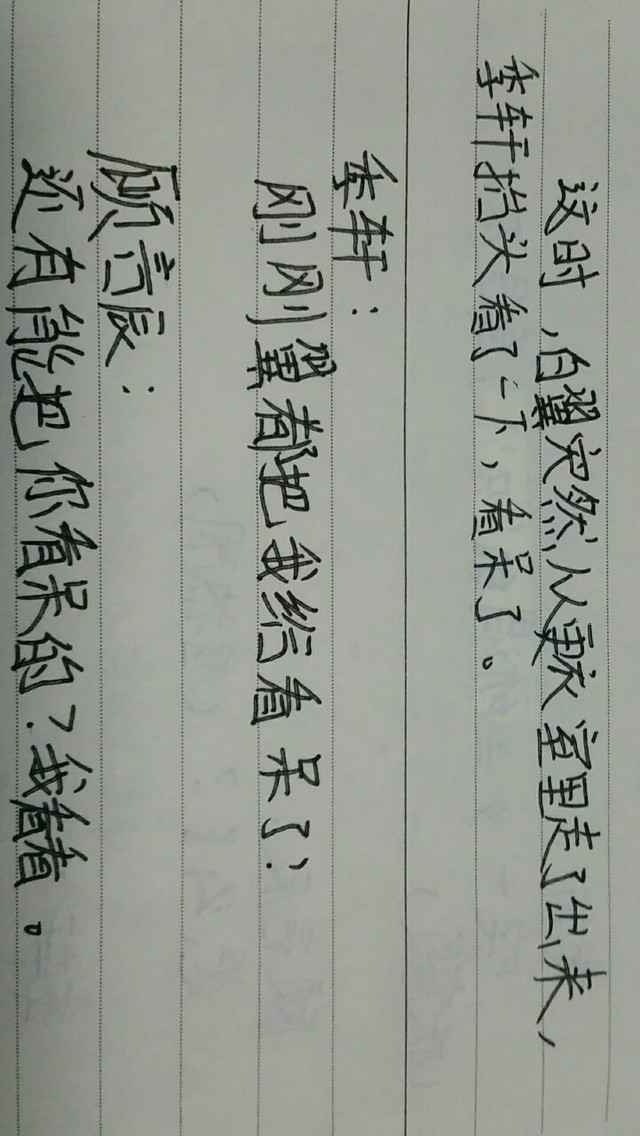 这时，白翼突然从更衣室里走了出来，
季轩抬头看了一下，看呆了。
季轩：
刚刚翼都把我给看呆了：
顾言辰：
还有能把你看呆的？我看看。